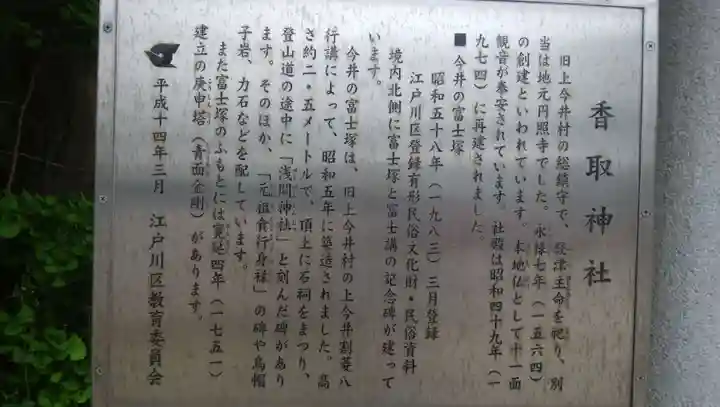 香取神社
旧上今井村の総鎮守で、経津主命を祀り、別
当は地元円照寺でした。永禄七年（一五六四）
の創建といわれています。本地仏として十一面
観音が奉安されています。社殿は昭和四十九年（一
九七四）に再建されました。
■ 今井の富士塚
昭和五十八年（一九八三）三月登録
江戸川区登録有形民俗文化財・民俗資料
境内北側に富士塚と富士講の記念碑が建って
います。
今井の富士塚は、旧上今井村の上今井割菱八
行講によって、昭和五年に築造されました。高
さ約二・五メートルで、頂上に石祠をまつり、
登山道の途中に「浅間神社」と刻んだ碑があり
ます。そのほか、「元祖食行身禄」の碑や烏帽
子岩、力石などを配しています。
また富士塚のふもとには寛延四年（一七五一）
建立の庚申塔（青面金剛）があります。
平成十四年三月　江戸川区教育委員会